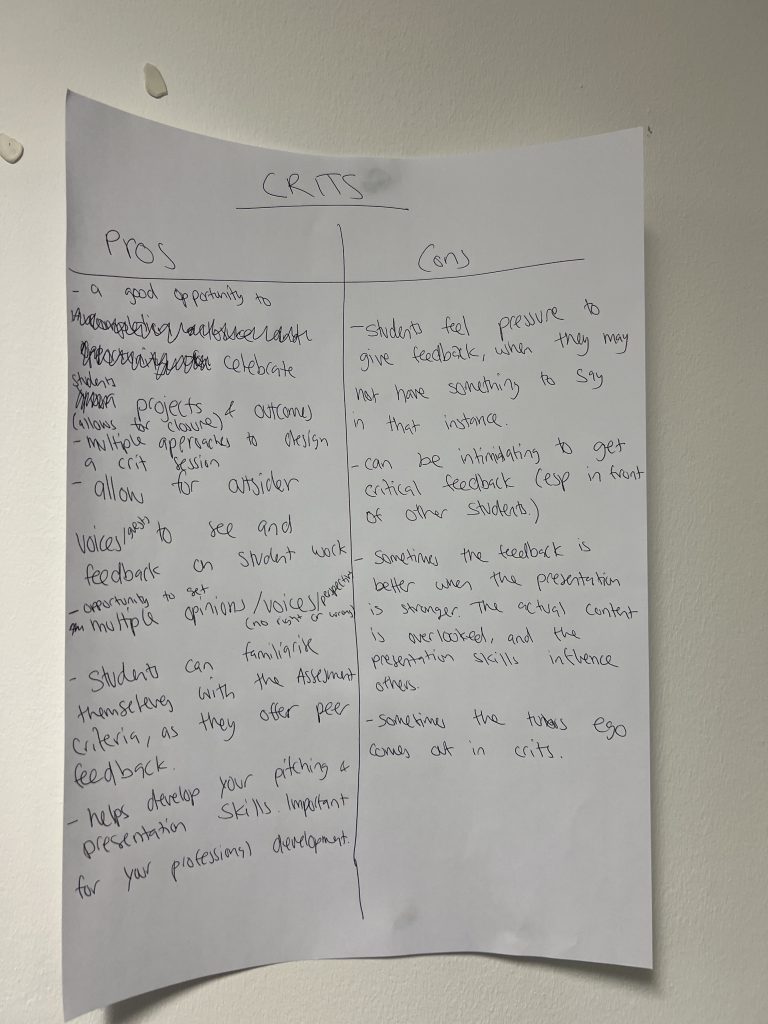 CRITS
Pros
- a good opportunity to
celebrate
students
projects & outcomes
(allows for closure)
- multiple approaches to design
a crit session
- allow for outsider
voices/guests to see and
feedback on student work
- opportunity to get
multiple opinions/voices/perspectives
(no right or wrong)
- Students can familiarise
themselves with the Assessment
criteria, as they offer peer
feedback.
- helps develop your pitching &
presentation skills. Important
for your professional development.
Cons
- Students feel pressure to
give feedback, when they may
not have something to say
in that instance.
- can be intimidating to get
critical feedback (esp in front
of other students.)
- sometimes the feedback is
better when the presentation
is stronger. The actual content
is overlooked, and the
presentation skills influence
others.
- sometimes the tutors ego
comes out in crits.